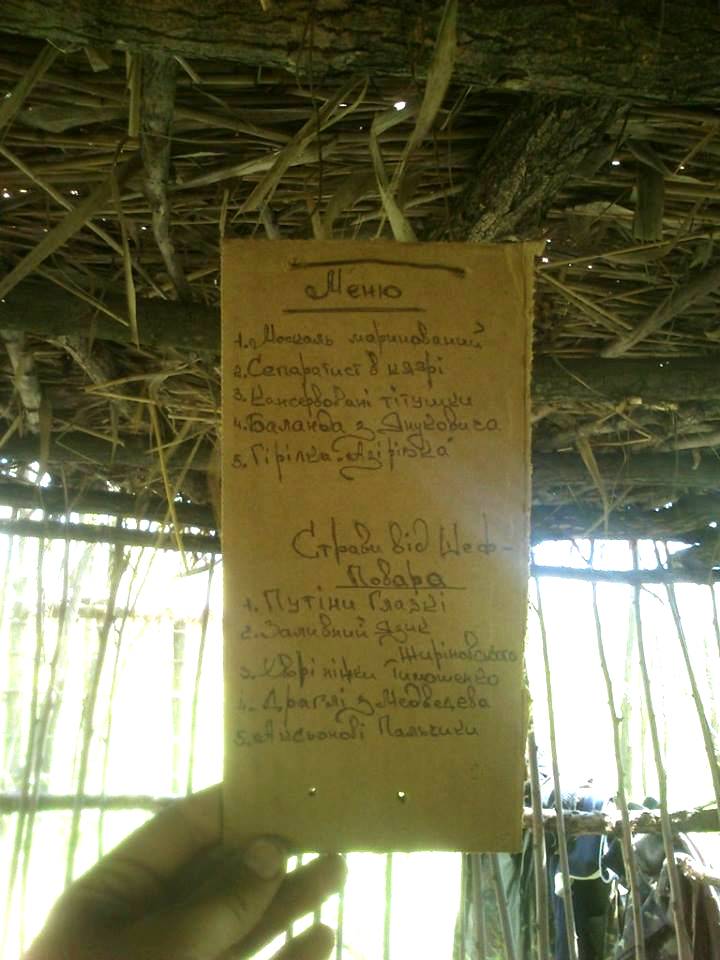 Меню
1. Москаль маринований
2. Сепаратист в клярі
3. Консервовані тітушки
4. Баланда з Януковича
5. Гірілка "Азірівка"
Страви від Шеф-
Повара
1. Путіни Глазкі
2. Заливний Язик
Жиріновського
3. Хворі ніжки Тимошенко
4. Драглі з Медведева
5. Аксьонові Пальчики